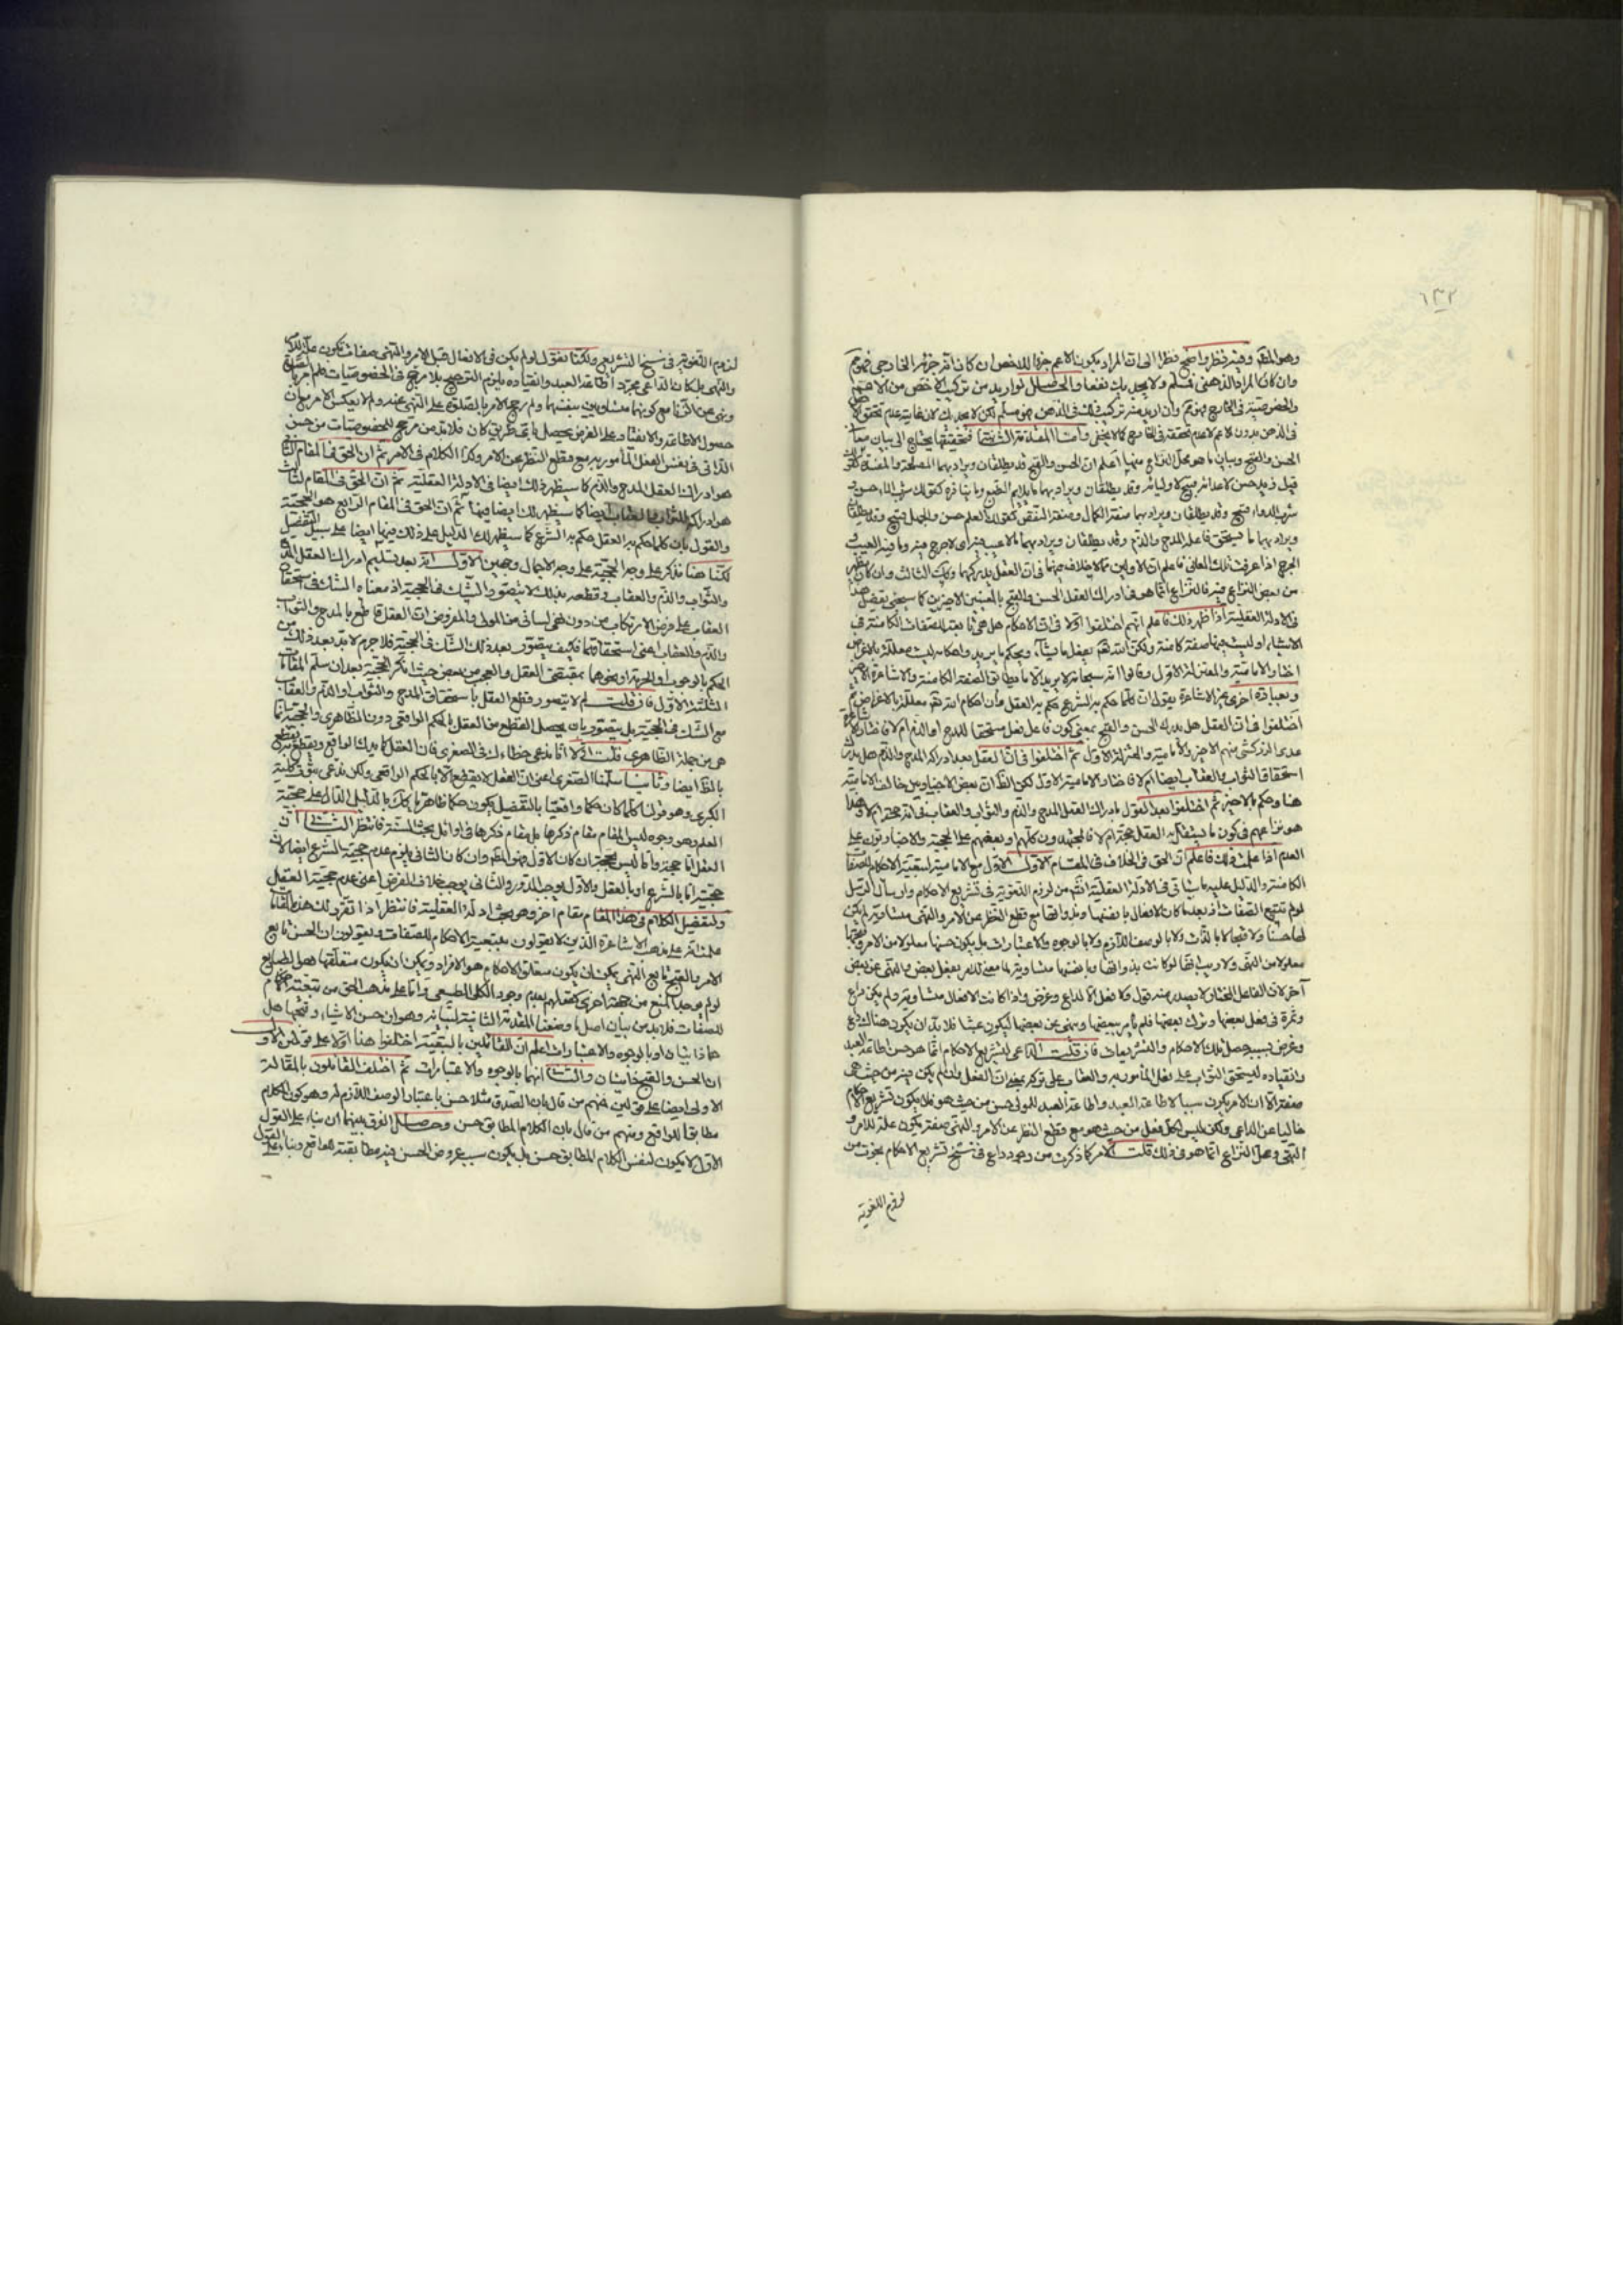 ١٣٢
وهو المطلوب وفيه نظر واضح نظرا الى ان المراد بكون الاعم جزءا للاخص ان كان انه جزئه الخارجي فهو مم
وان كان المراد الذهني فمسلم ولا يجديك نفعا والحاصل لو اريد من تركيب الاخص من الاعم
والخصوصية في الخارج فهو مم وان اريد منه تركبه في الذهن فهو مسلم لكن لا يجديك لان غايته عدم تحقق
في الذهن بدون الاعم لا عدم تحققه في الخارج كما لا يخفى واما المقدمة الثانية فتحقيقها يحتاج الى بيان معنى
الحسن والقبح وبيان ما هو محل النزاع منها اعلم ان الحسن والقبح قد يطلقان ويراد بهما المصلحة والمفسدة
قتل زيد حسن لاعدائه قبيح لاوليائه وقد يطلقان ويراد بهما ما يلايم الطبع وما ينافره كقولك شرب الماء حسن و
شرب الدواء قبيح وقد يطلقان ويراد بهما صفة الكمال وصفة النقص كقولك العلم حسن والجهل قبيح وقد يطلقان
ويراد بهما ما يستحق فاعله المدح والذم وقد يطلقان ويراد بهما ما لا عيب فيه اى لا حرج فيه وما فيه العيب و
الحرج اذا عرفت تلك المعاني فاعلم ان الاولين مما لا خلاف فيهما فان العقل يدركهما وكذا الثالث وان كان يظهر
من بعض النزاع فيه فالنزاع انما هو في ادراك العقل الحسن والقبح بالمعنيين الاخيرين كما سيجئ تفصيل هذا
في الادلة العقلية اذا ظهر ذلك فاعلم انهم اختلفوا اولا في ان الاحكام هل هي تابعة للصفات الكامنة في
الاشياء او ليست فيها صفة كامنة ولكن الله تعم يفعل ما يشاء ويحكم ما يريد واحكامه ليست معللة بالاغراض
اختار الامامية والمعتزلة الاول وقالوا انه سبحانه لا يريد الا ما يطابق الصفة الكامنة والاشاعرة
وبعبارة اخرى نحن الاشاعرة يقول ان كلما حكم به الشرع حكم به العقل وان احكام الله تعم معللة بالاغراض ثم
اختلفوا في ان العقل هل يدرك الحسن والقبح بمعنى كون فاعل فعل مستحقا للمدح او الذم ام لا فاختار الاشاعرة
عدى الزركشي منهم الاخير والامامية والمعتزلة الاول ثم اختلفوا في ان العقل بعد ادراكه المدح والذم هل يدرك
استحقاق الثواب والعقاب ايضا ام لا فاختار الامامية الاول لكن الظ ان بعض الاخباريين خالف الامامية
هنا وحكم بالاخير ثم اختلفوا بعد القول بادراك العقل المدح والذم والثواب والعقاب في انه حجة ام لا وهذا
هو نزاعهم في كون ما يستقل به العقل حجة ام لا فالمجتهدون كلهم وبعضهم على الحجية والاخباريون على
العدم اذا علمت ذلك فاعلم ان الحق في الخلاف في المقام الاول مع الامامية لتبعية الاحكام للصفات
الكامنة والدليل عليه ما سياتي في الادلة العقلية انشم من لزوم اللغوية في تشريع الاحكام وارسال الرسل
لو لم تتبع الصفات اذ بعد ما كان الافعال بانفسها وبذواتها مع قطع النظر عن الامر والنهى متساوية لم يكن
لها حسنا ولا قبحا لا بالذات ولا بالوصف اللازم ولا بالوجوه والاعتبارات بل يكون حسنها معلولا من الامر وقبحها
معلولا من النهى ولا ريب انها لو كانت بذواتها وبانفسها متساوية لما معنى للامر بفعل بعض والنهى عن بعض
آخر لان الفاعل المختار لا يصدر منه قول ولا فعل الا لداع وغرض واذا كانت الافعال متساوية ولم يكن داع
وثمرة في فعل بعضها وترك بعضها فلم يامر ببعضها وينهى عن بعضها ليكون عبثا فلا بد ان يكون هناك داع
وغرض بسببه حصل تلك الاحكام والتشريعات فان قلت الداعى لتشريع الاحكام انما هو حسن اطاعة العبد
وانقياده ليستحق الثواب على فعل المامور به والعقاب على تركه بمعنى ان الفعل وان لم يكن فيه من حيث هى
صفة الا ان الامر يكون سببا لاطاعة العبد واطاعة العبد للمولى حسن من حيث هو فلا يكون تشريع الاحكام
خاليا عن الداعى ولكن ليس لكل فعل من حيث هو مع قطع النظر عن الامر والنهى صفة يكون علة للامر و
النهى ومحل النزاع انما هو في ذلك قلت الامر كما ذكرت من وجود داع في سنخ تشريع الاحكام بحيث
لزوم اللغوية
لزوم اللغوية في سنخ التشريع ولكنا نقول لو لم يكن في الافعال قبل الامر والنهى صفات تكون علة للامر
والنهى بل كان الداعى مجرد اطاعة العبد وانقياده يلزم الترجيح بلا مرجح في الخصوصيات فلم امر بالصلوة
ونهى عن الزنا مع كونهما متساويين بنفسهما ولم رجح الامر بالصلوة على النهى عنه ولم لا يعكس الامر مع ان
حصول الاطاعة والانقياد على الفرض يحصل باى طريق كان فلا بد من مرجح للخصوصيات من حسن
الذاتي في نفس الفعل المامور به مع قطع النظر عن الامر وكذا الكلام في الامر ثم ان الحق في المقام الثاني
هو ادراك العقل المدح والذم كما سيظهر ذلك ايضا في الادلة العقلية ثم ان الحق في المقام الثالث
هو ادراكه للثواب والعقاب ايضا كما سيظهر لك ايضا فيها ثم ان الحق في المقام الرابع هو الحجية
والقول بان كلما حكم به العقل حكم به الشرع كما سيظهر لك الدليل على ذلك فيها ايضا على سبيل التفصيل
لكنا هنا نذكر على وجه الحجية على وجه الاجمال وجهين الاول انه بعد تسليم ادراك العقل المدح
والثواب والذم والعقاب وقطعه بذلك لا يتصور الشك في الحجية اذ معناه الشك في استحقاق
العقاب على فرض الارتكاب من دون نهى لساني من المولى والمفروض ان العقل قاطع بالمدح والثواب
والذم والعقاب اعنى استحقاقهما فكيف يتصور بعد ذلك الشك في الحجية فلا جرم لا بد بعد ذلك من
الحكم بالوجوب او الحرمة او نحوهما بمقتضى العقل والعجب من بعض حيث انكر الحجية بعد ان سلم المقامات
الثلثة الاول فان قلت لم لا يتصور قطع العقل باستحقاق المدح والثواب او الذم والعقاب
مع الشك في الحجية بل يتصور بان يحصل القطع من العقل بالحكم الواقعي دون الظاهرى والحجية انما
هى من جملة الظاهرى قلت اولا انا ندعى خطاءك في الصغرى فان العقل كما يدرك الواقع ويقطع به يقطع
بالظ ايضا وثانيا سلمنا الصغرى اعنى ان العقل لا يقطع الا بالحكم الواقعي ولكن ندعى ثبوت كلية
الكبرى وهو قولنا كلما كان حكما واقعيا بالتفصيل يكون حكما ظاهريا كك بالدليل الدال على حجية
العلم وهو وجوه ليس المقام مقام ذكرها بل مقام ذكرها في اوائل بحث السنة فانتظر الثاني ان
العقل اما حجة واما ليس بحجة ان كان الاول فهو المطم وان كان الثاني يلزم عدم حجية الشرع ايضا لان
حجيته اما بالشرع او بالعقل والاول يوجب الدور والثاني يوجب خلاف الفرض اعنى عدم حجية العقل
ولتفصيل الكلام في هذا المقام مقام آخر وهو بحث ادلة العقلية فانتظر اذا تقرر لك هذه المقامات
علمت انه على مذهب الاشاعرة الذين لا يقولون بتبعية الاحكام للصفات ويقولون ان الحسن تابع
الامر والقبح تابع النهى يمكن ان يكون متعلق الاحكام هو الافراد ويمكن ان يكون متعلقها هى الطبايع
لو لم يوجد المنع من جهة اخرى كقولهم بعدم وجود الكلى الطبيعى واما على مذهب الحق من تبعية الاحكام
للصفات فلا بد من بيان اصل وضعنا المقدمة الثانية لبيانه وهو ان حسن الاشياء وقبحها هل
هما ذاتيان او بالوجوه والاعتبارات اعلم ان القائلين بالتبعية اختلفوا هنا اولا على قولين الاول
ان الحسن والقبح ذاتيان والثاني انهما بالوجوه والاعتبارات ثم اختلف القائلون بالمقالة
الاولى ايضا على قولين فمنهم من قال بان الصدق مثلا حسن باعتبار الوصف اللازم له وهو كون الكلام
مطابقا للواقع ومنهم من قال بان الكلام المطابق حسن وحاصل الفرق بينهما ان بناء على القول
الاول لا يكون لنفس الكلام المطابق حسن بل يكون سبب عروض الحسن فيه مطابقته للواقع وبناء على القول